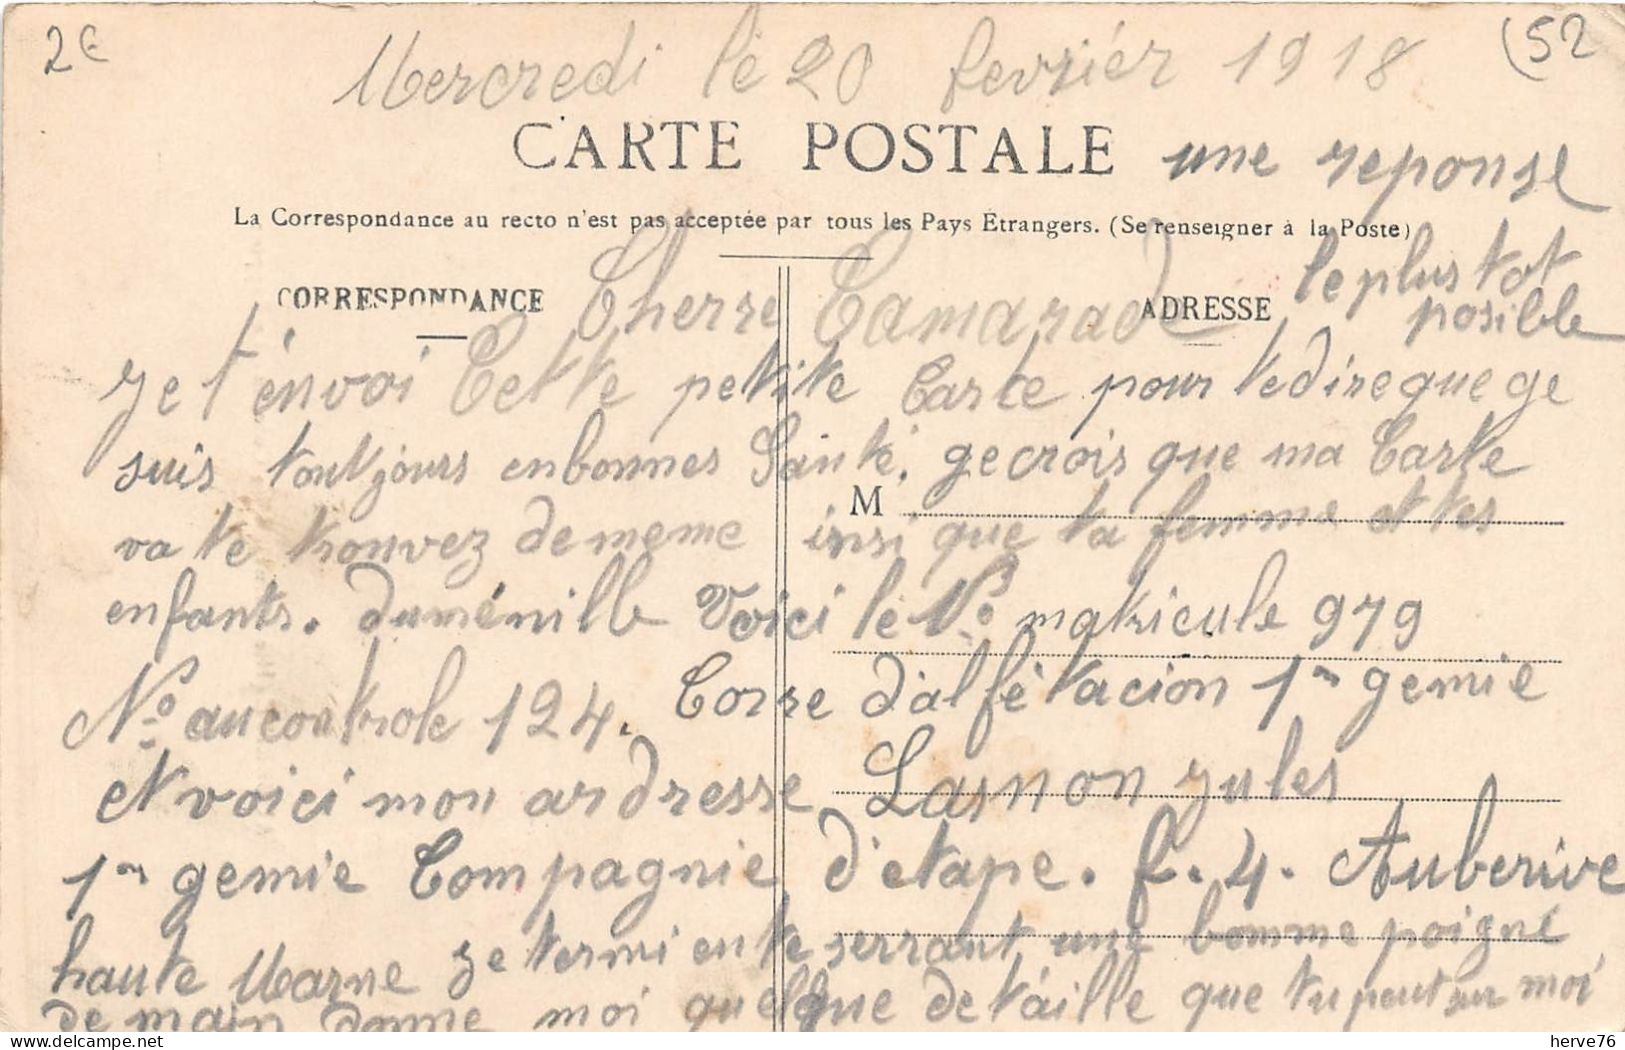 2€
(52
Mercredi lé 20 fevriér 1918
CARTE POSTALE
une reponse
La Correspondance au recto n'est pas acceptée par tous les Pays Étrangers. (Se renseigner à la Poste)
le plus tot
posible
CORRESPONDANCE
ADRESSE
Cherre Camarade
Je t'énvoi Cette petite Carte pour te dire que ge
suis toutjours en bonnes Santé. ge crois que ma Carte
M
va te trouvez de meme insi que ta femme et tes
enfants. duménill Voici lé No matricule 979
No au controle 124. Corse d'alfétacion 1er gemie
et voici mon ardresse Lasnon Jules
1er gemie Compagnie d'etape. E. 4. Auberive
haute Marne Je termi en te serrant une bomme poigné
de main donne moi quelque détaille que tu peut sur moi
herve76